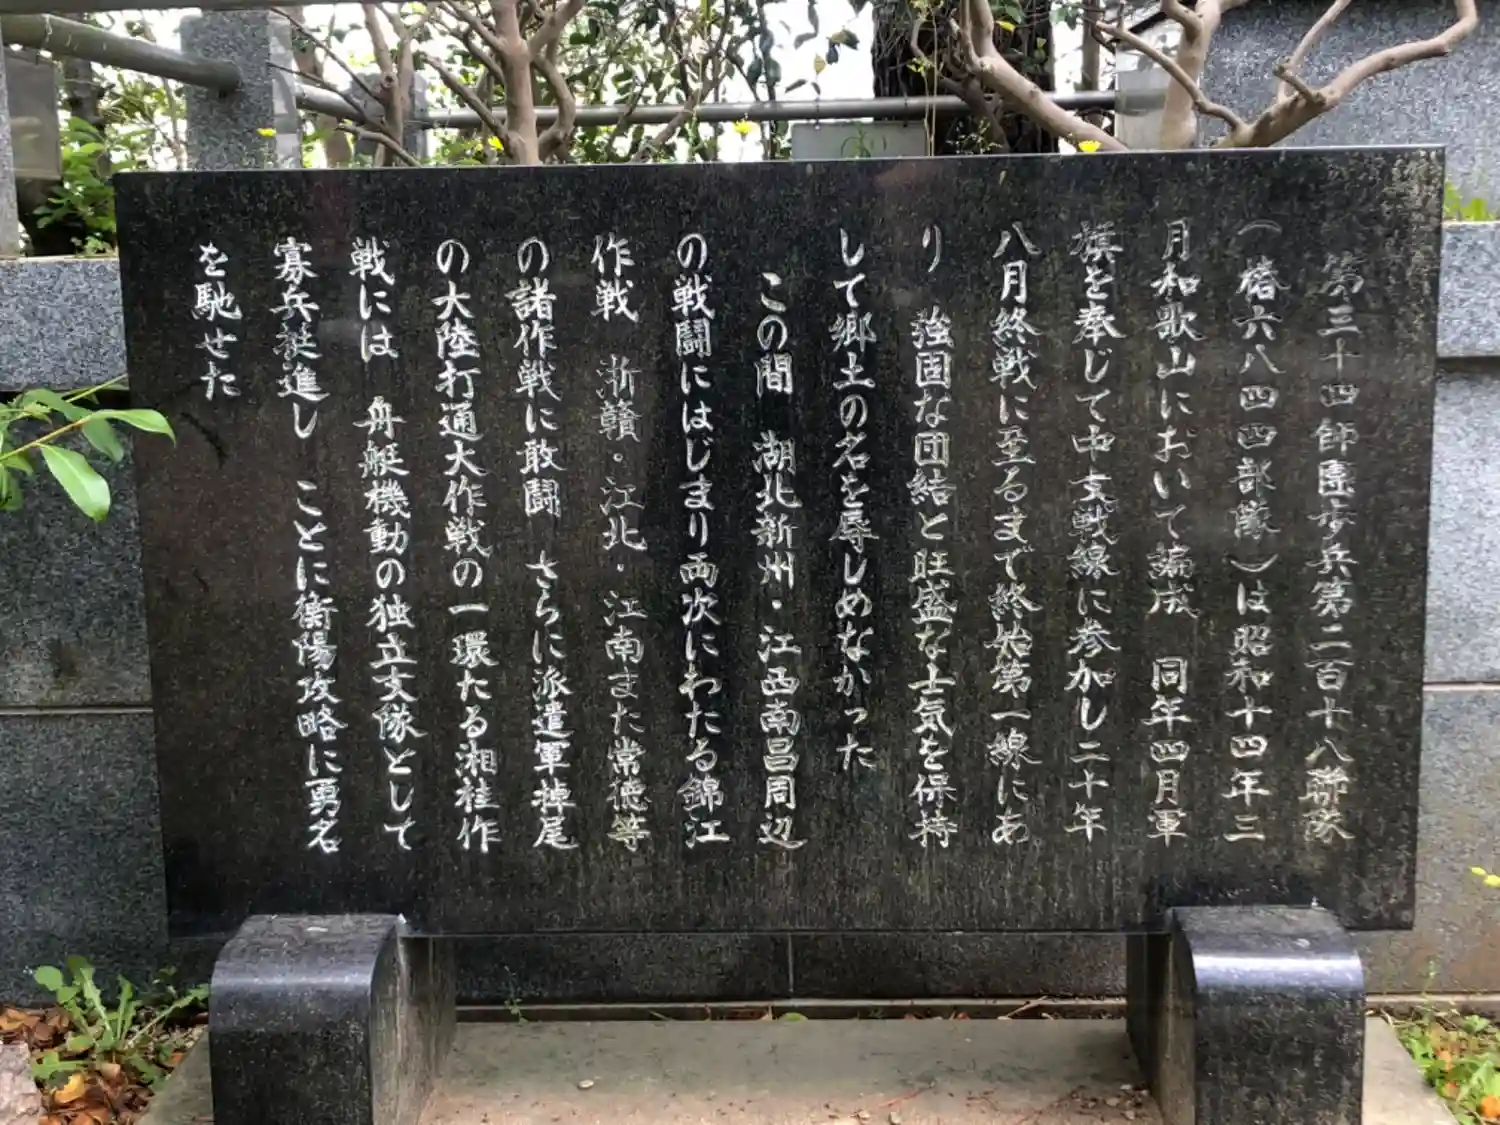 第三十四師團歩兵第二百十八聯隊
（椿六八四四部隊）は昭和十四年三
月和歌山において編成　同年四月軍
旗を奉じて中支戦線に参加し二十年
八月終戦に至るまで終始第一線にあ
り　強固な団結と旺盛な士気を保持
して郷土の名を辱しめなかった
この間　湖北新州・江西南昌周辺
の戦闘にはじまり両次にわたる錦江
作戦　浙贛・江北・江南また常徳等
の諸作戦に敢闘　さらに派遣軍掉尾
の大陸打通大作戦の一環たる湘桂作
戦には　舟艇機動の独立支隊として
寡兵挺進し　ことに衡陽攻略に勇名
を馳せた